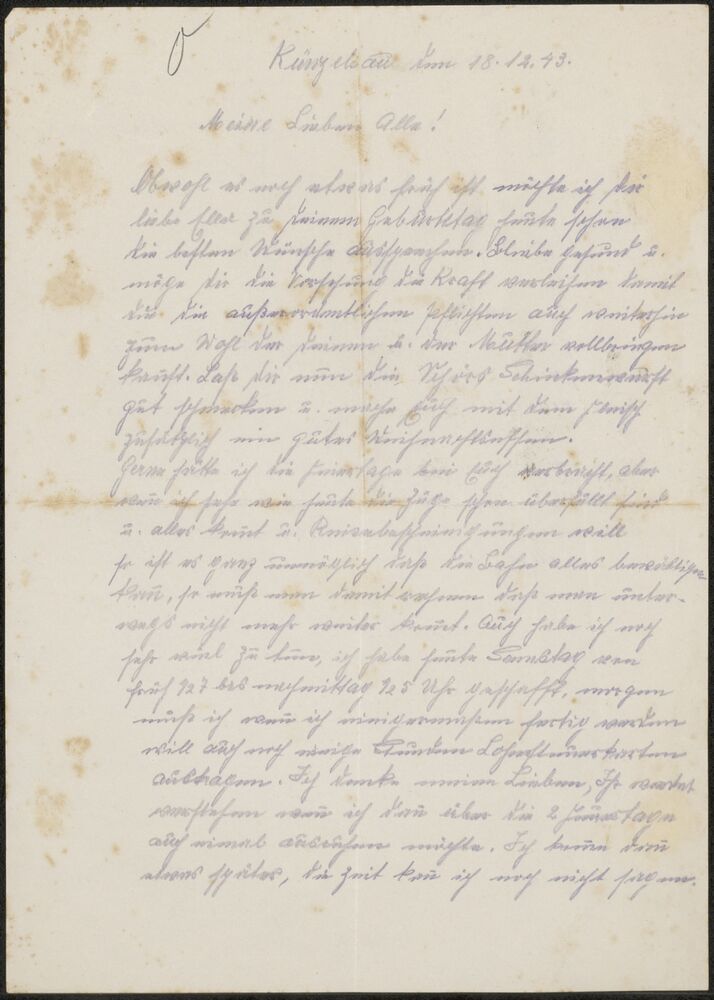 Künzelsau den 18.12.43.
Meine Lieben Alle!
Obwohl es noch etwas früh ist möchte ich Dir
liebe Ella zu Deinem Geburtstag heute schon
die besten Wünsche aussprechen. Bleibe gesund u.
möge dir die Vorsehung die Kraft verleihen damit
du die außerordentlichen Pflichten auch weiterhin
zum Wohl der Deinen u. der Mutter vollbringen
kannst. Laß dir nun die Schinkenwurst
gut schmecken u. mache Euch mit dem Fleisch
zusätzlich ein gutes Weihnachtsessen.
Gerne hätte ich die Feiertage bei Euch verbracht, aber
wenn ich sehe wie heute die Züge schon überfüllt sind
u. alles kommt u. Reisebescheinigungen will
so ist es ganz unmöglich daß die Bahn alles bewältigen
kann, so muß man damit rechnen daß man unter-
wegs nicht mehr weiter kommt. Auch habe ich noch
sehr viel zu tun, ich habe heute Samstag von
früh 1/2 7 bis nachmittag 1/2 5 Uhr geschafft, morgen
muß ich wenn ich einigermaßen fertig werden
will auch noch einige Stunden Lohnsteuerkarten
austragen. Ich denke meine Lieben, Ihr werdet
verstehen wenn ich dann über die 2 Feiertage
auch einmal ausruhen möchte. Ich komme dann
etwas später, die Zeit kann ich noch nicht sagen.